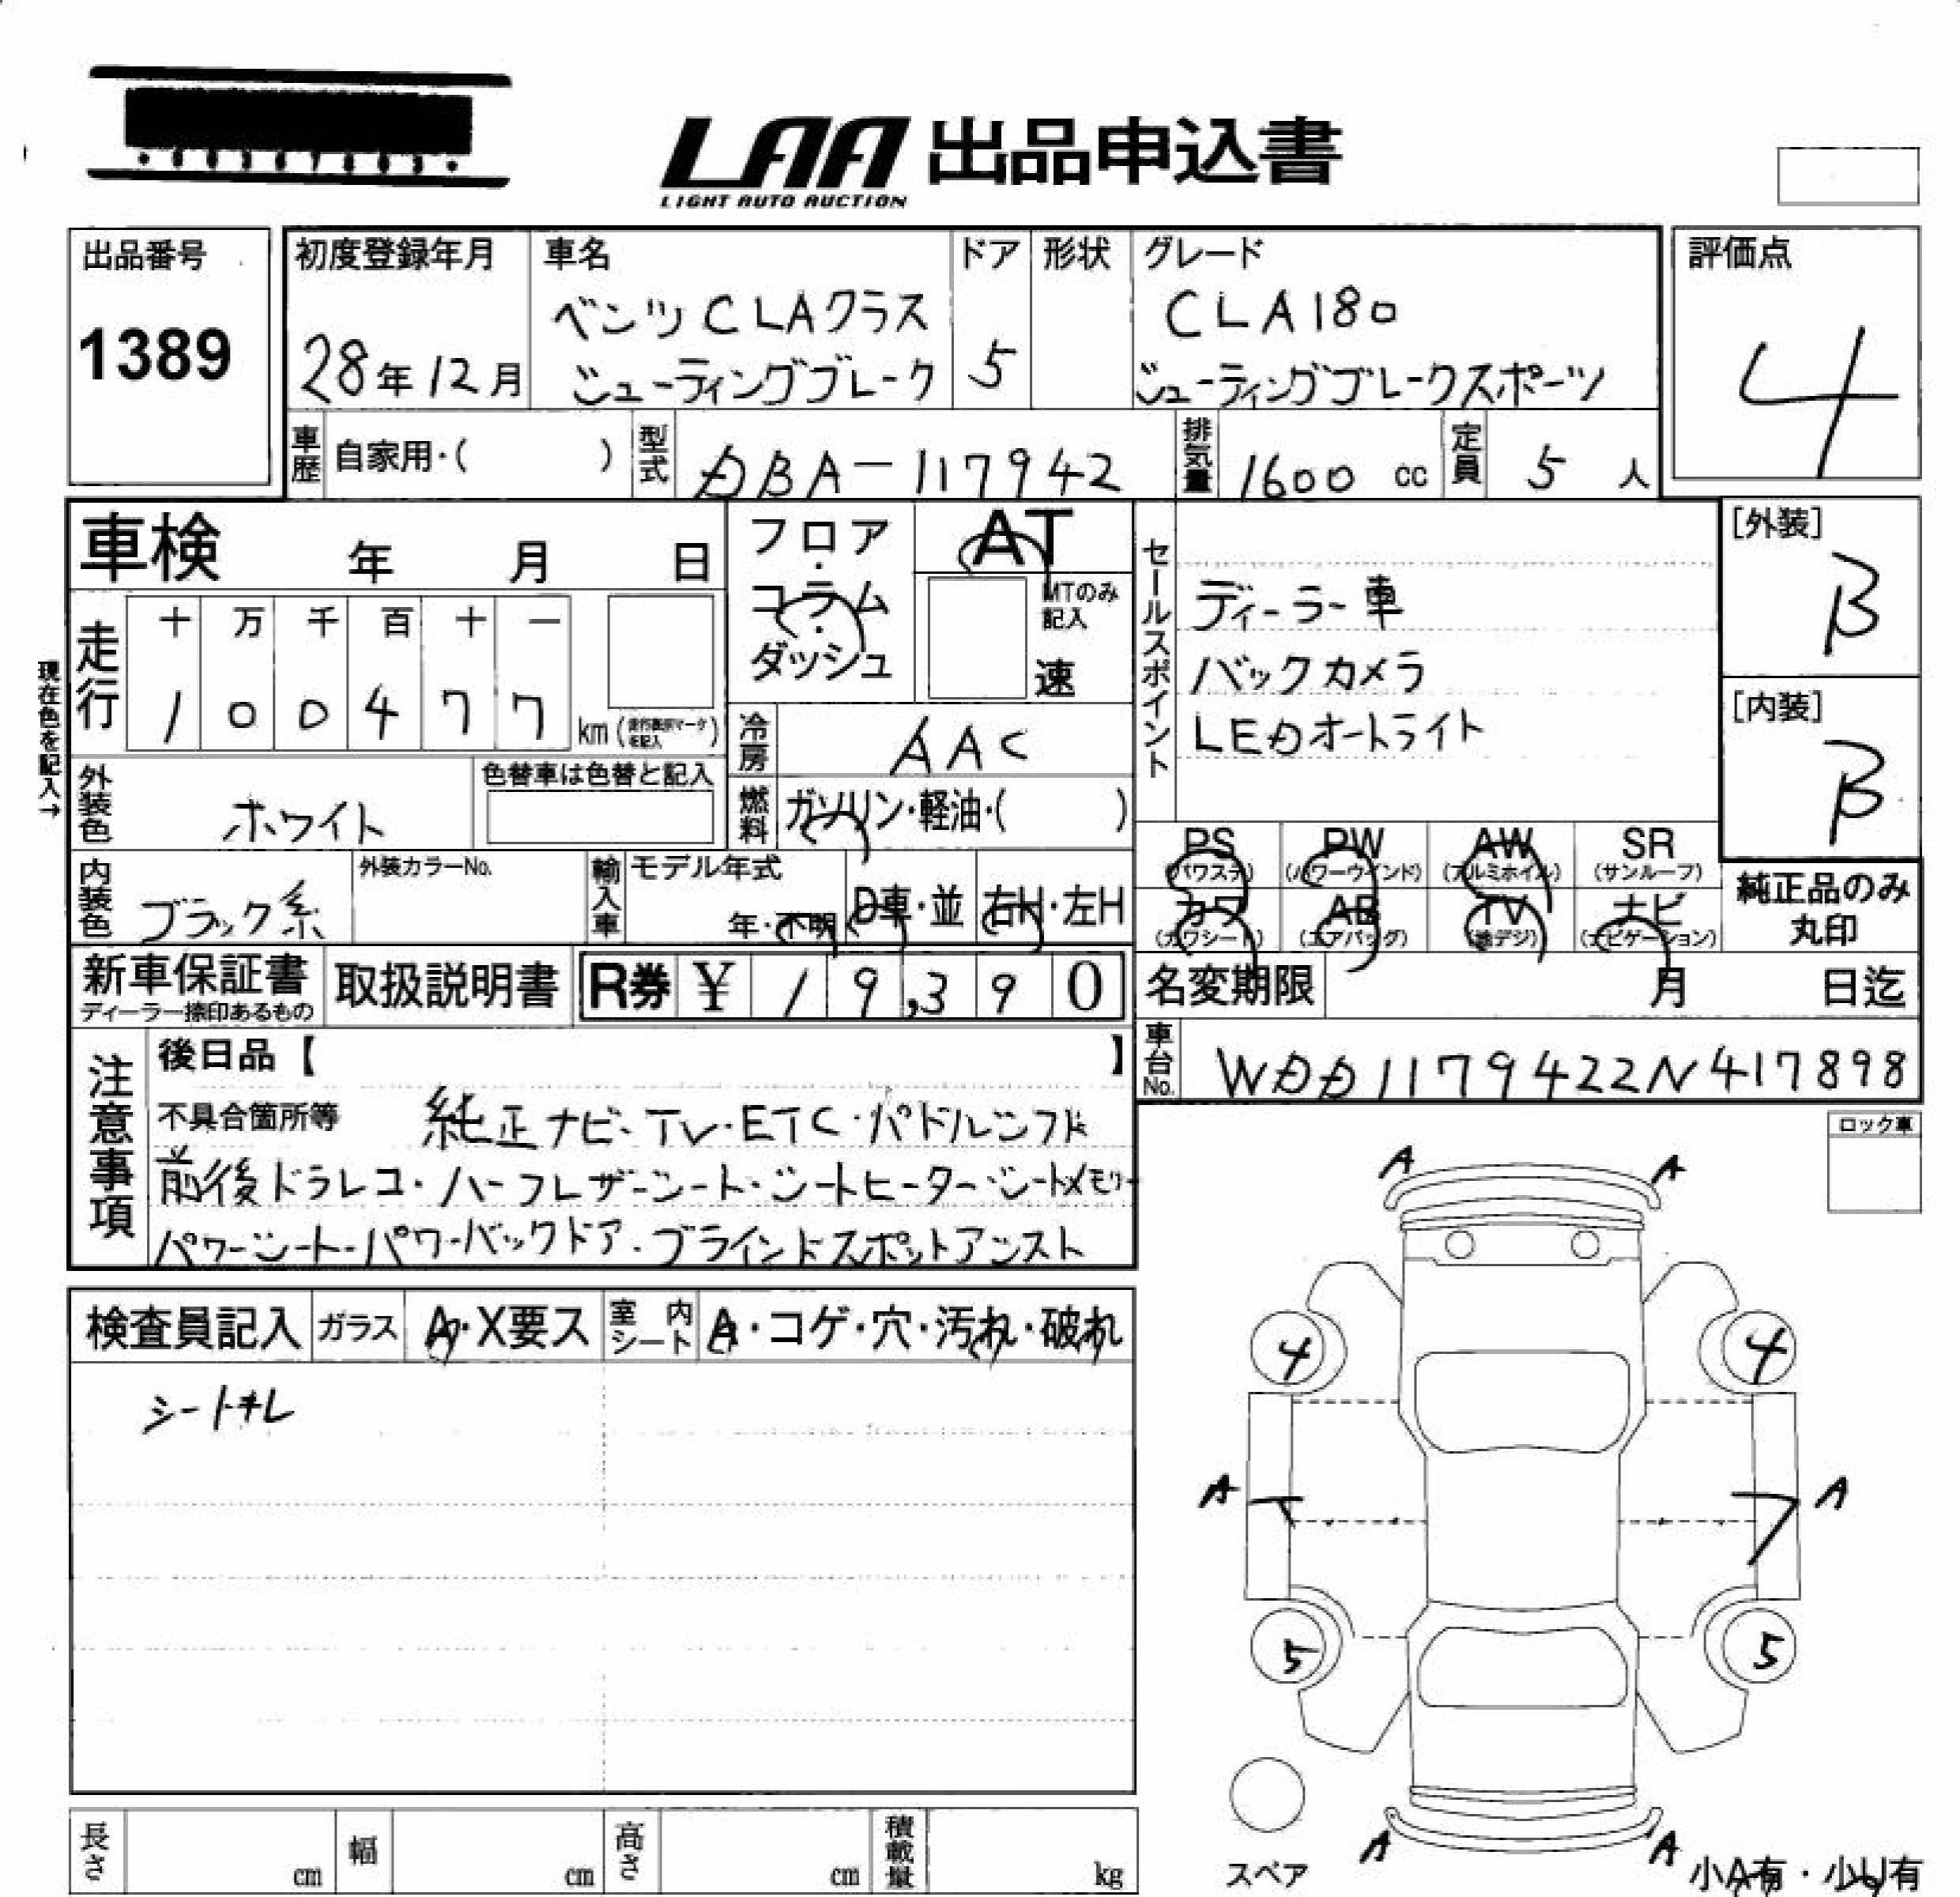 LAA 出品申込書
LIGHT AUTO AUCTION
出品番号
1389
初度登録年月
28年12月
車名
ベンツCLAクラス
シューティングブレーク
ドア
5
形状
グレード
CLA180
シューティングブレークスポーツ
評価点
4
車歴 自家用・( )
型式 DBA-117942
排気量 1600 cc
定員 5 人
車検 年 月 日
フロア・コラム・ダッシュ
AT
MTのみ記入
速
セールスポイント
ディーラー車
バックカメラ
LEDオートライト
[外装]
B
[内装]
B
現在色を記入→
走行
十 万 千 百 十 一
1 0 0 4 7 7 km
冷房 AAC
外装色 ホワイト
色替車は色替と記入
燃料 ガソリン・軽油・( )
内装色 ブラック系
外装カラーNo.
輸入車 モデル年式
年・不明 D車・並 右H・左H
PS (パワステ)
PW (パワーウインド)
AW (アルミホイル)
SR (サンルーフ)
カワ (カワシート)
AB (エアバッグ)
TV (地デジ)
ナビ (ナビゲーション)
純正品のみ
丸印
新車保証書
ディーラー捺印あるもの
取扱説明書
R券 ¥ 19,390
名変期限 月 日迄
車台No. WDD1179422N417898
注意事項
後日品【 】
不具合箇所等 純正ナビ・TV・ETC・パドルシフト
前後ドラレコ・ハーフレザーシート・シートヒーター・シートメモリー
パワーシート・パワーバックドア・ブラインドスポットアシスト
ロック車
検査員記入 ガラス A・X要ス 室内シート A・コゲ・穴・汚れ・破れ
シートキレ
A A
4 4
A A
5 5
A A
スペア
小A有・小U有
長さ cm 幅 cm 高さ cm 積載量 kg